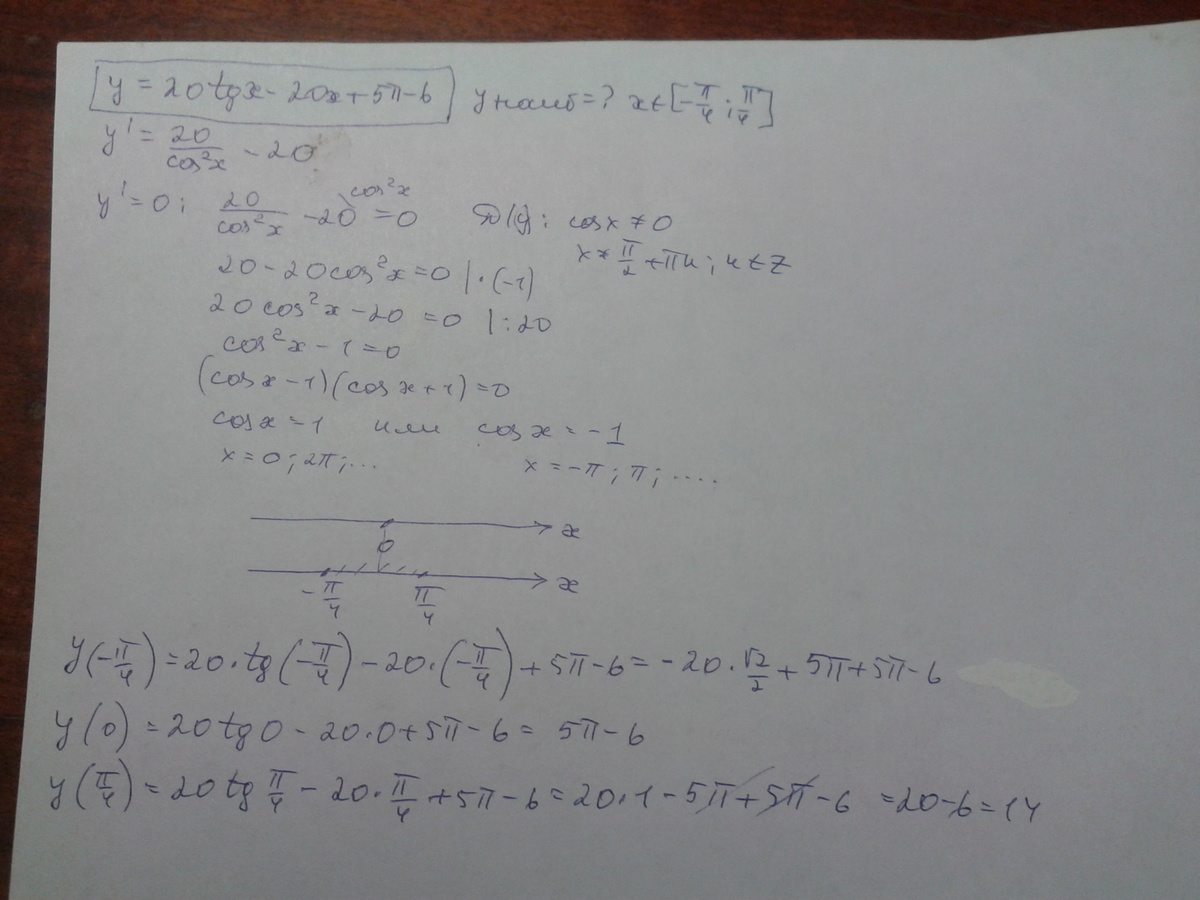 y = 20 tg x - 20x + 5π - 6 y наиб = ? x ∈ [-π/4 ; π/4]
y' = 20/cos²x - 20
y' = 0 ; 20/cos²x - 20 \cos²x = 0 D(y): cos x ≠ 0
x ≠ π/2 + πn ; n ∈ Z
20 - 20 cos²x = 0 | · (-1)
20 cos²x - 20 = 0 | : 20
cos²x - 1 = 0
(cos x - 1)(cos x + 1) = 0
cos x = 1 или cos x = -1
x = 0 ; 2π ; ... x = -π ; π ; ....
x
0
x
-π/4 π/4
y(-π/4) = 20 · tg(-π/4) - 20 · (-π/4) + 5π - 6 = -20 · √2/2 + 5π + 5π - 6
y(0) = 20 tg 0 - 20 · 0 + 5π - 6 = 5π - 6
y(π/4) = 20 tg π/4 - 20 · π/4 + 5π - 6 = 20 · 1 - 5π + 5π - 6 = 20 - 6 = 14